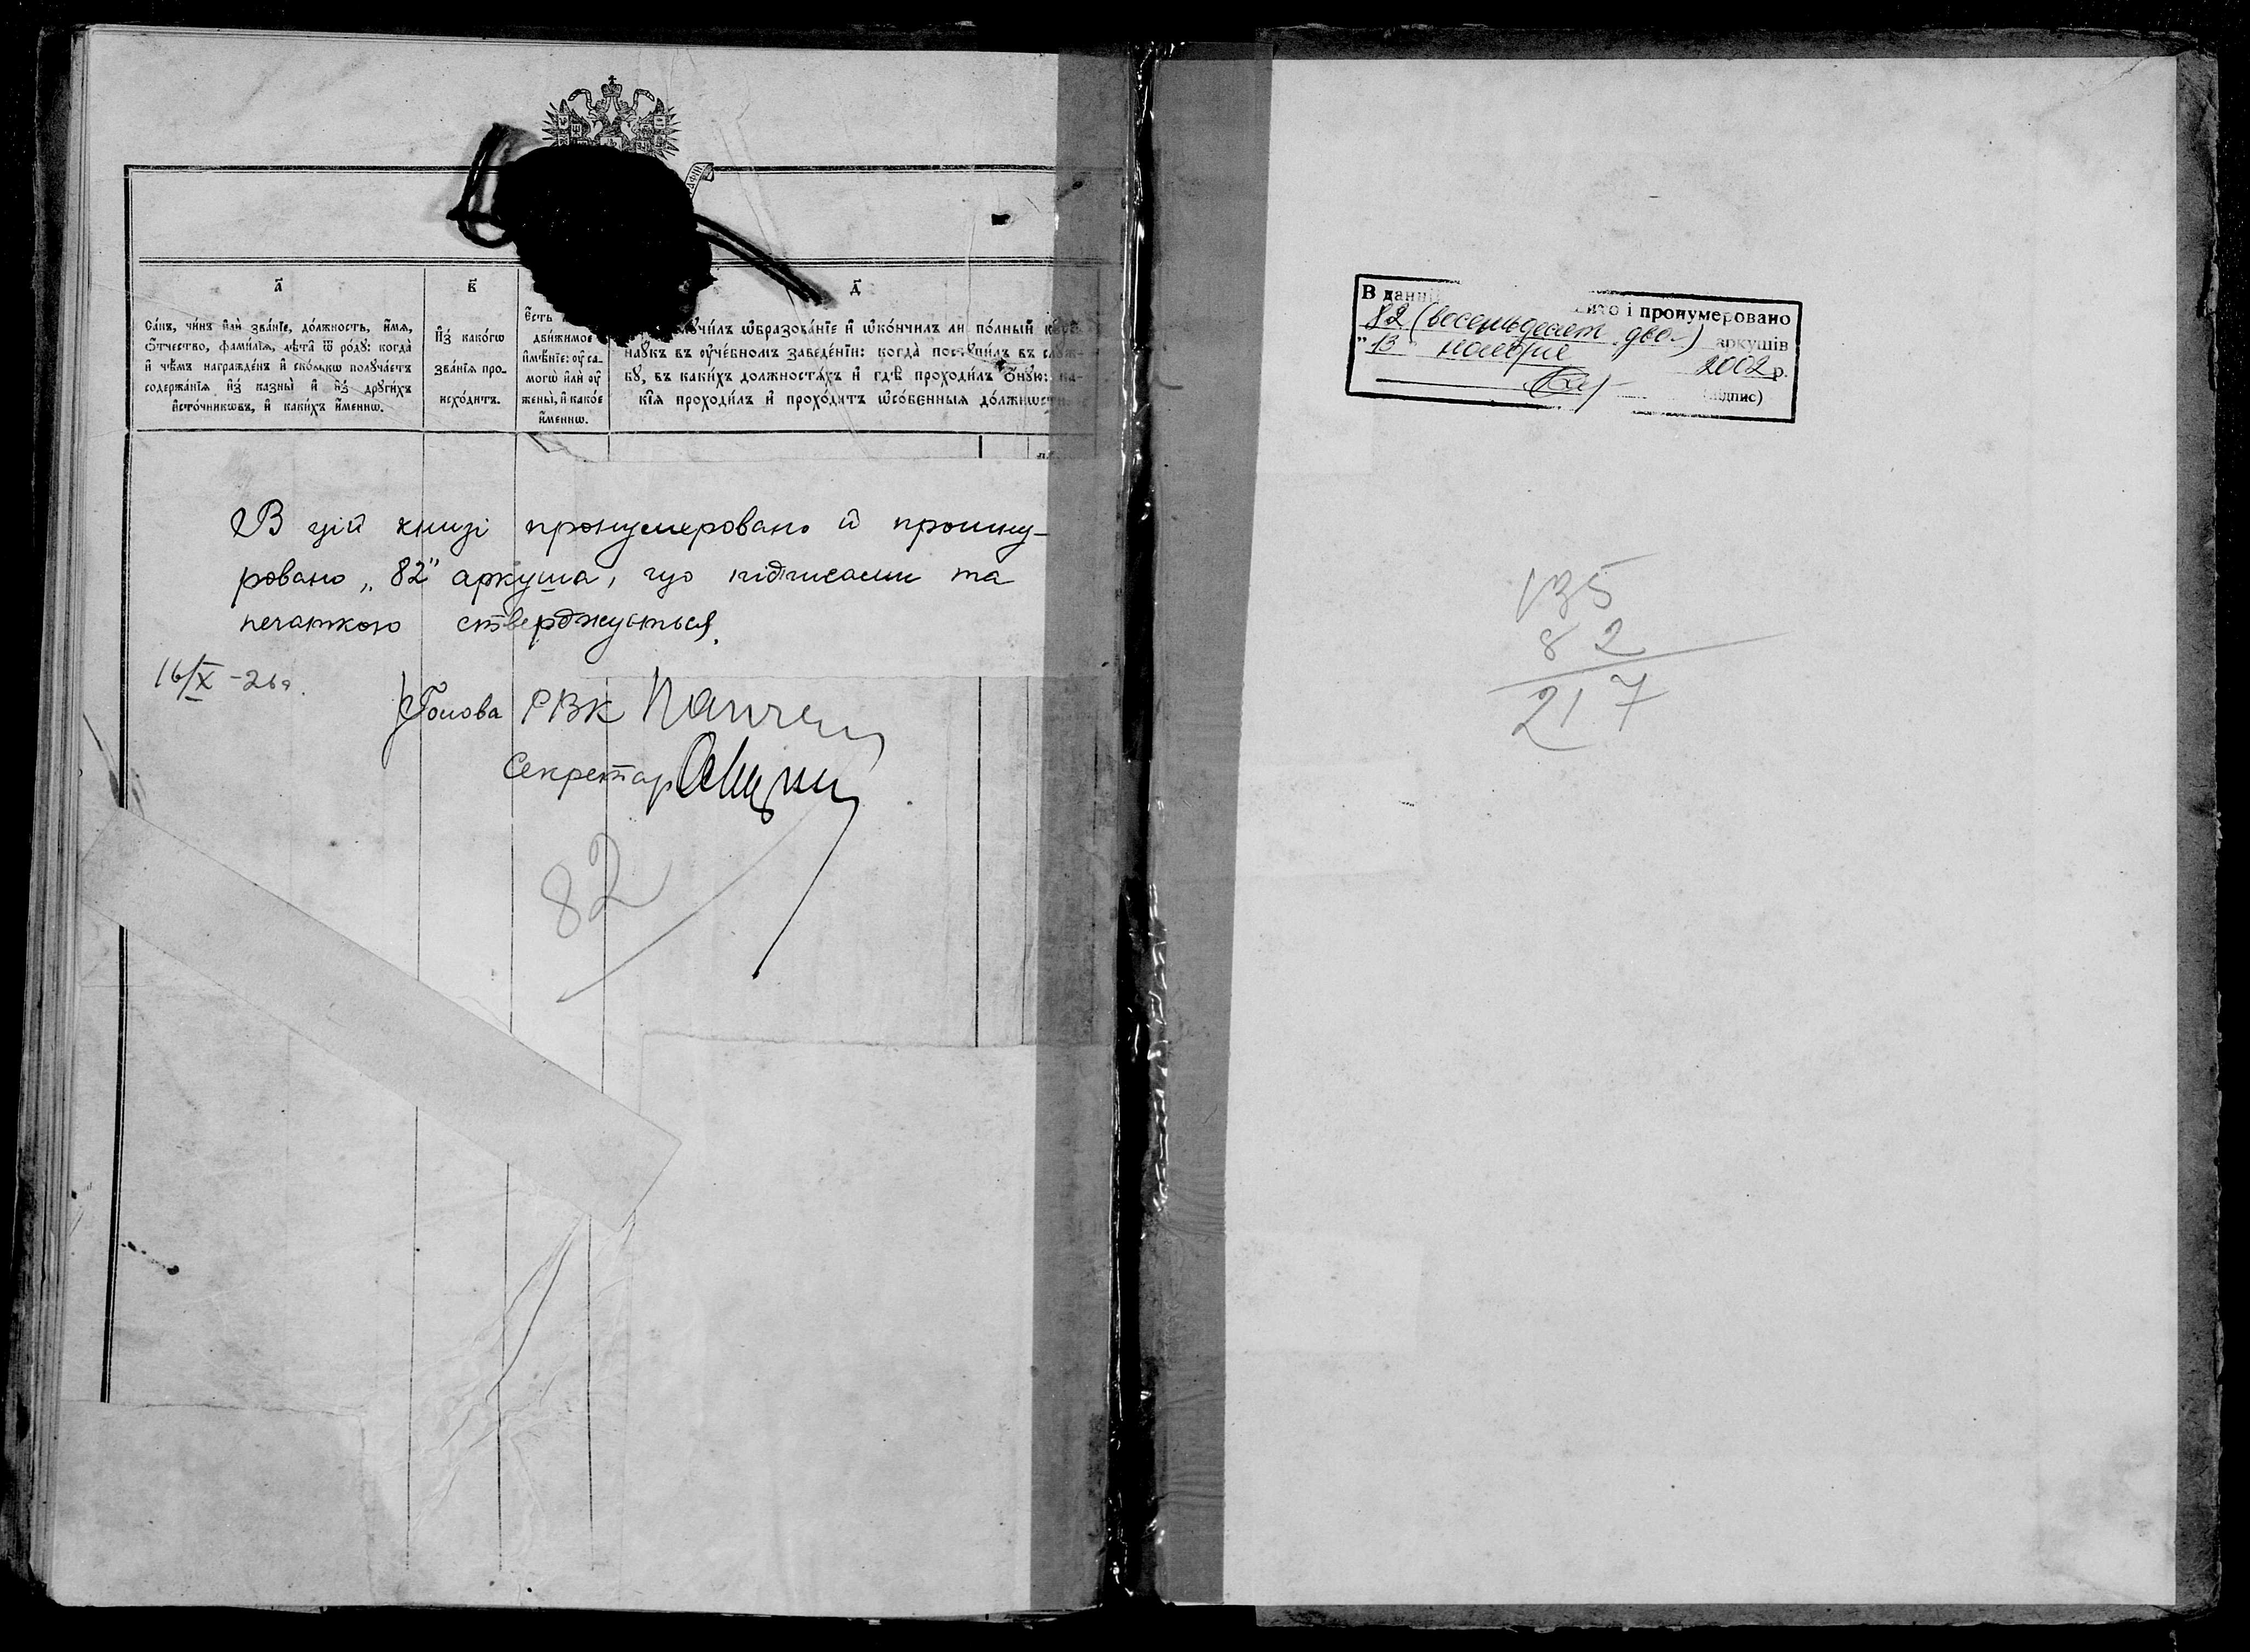 а҃
Са́нъ, чи́нъ и҆лѝ зва́нїе, до́лжность, и҆́мѧ,
ѻ҆́тчество, фамѝлїѧ, лѣ́та ѿ ро́дꙋ: когда̀
и҆ чѣ́мъ награжде́нъ и҆ ско́лькѡ полꙋча́етъ
содержа́нїѧ и҆з̾ казны̀ и҆ и҆з̾ дрꙋги́хъ
и҆сто́чникѡвъ, и҆ каки́хъ и҆́меннѡ.
в҃
И҆з̾ како́гѡ
зва́нїѧ про-
исхо́дитъ.
Е҆́сть
дви́жимое
и҆мѣ́нїе: ᲂу҆ са-
могѡ̀ и҆лѝ ᲂу҆
жены̀, и҆ како́е
и҆́меннѡ.
д҃
ѡ҆бразова́нїе и҆ ѡ҆ко́нчилъ ли по́лный
наꙋ́къ въ ᲂу҆че́бномъ заведе́нїи: когда̀ постꙋпи́лъ въ слꙋ́ж-
бꙋ, въ каки́хъ должностѧ́хъ и҆ гдѣ̀ проходи́лъ ѻ҆́нꙋю: ка-
кїѧ проходи́лъ и҆ прохо́дитъ ѡ҆со́бенныѧ до́лжнѡсти
В цій книзі пронумеровано й прошну-
ровано „82" аркуша, що підписами та
печаткою стверджується.
16/X -26 р.
Голова РВК
Секретар
82
В даній ито і пронумеровано
82 (восемьдесят два) аркушів
"13" ноября 2002 р.
(підпис)
135
82
217